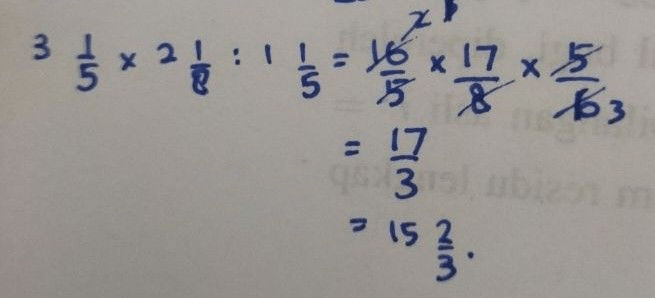 3 1/5 × 2 1/8 : 1 1/5 = 16/5 × 17/8 × 5/6 2 1 3
= 17/3
= 15 2/3.